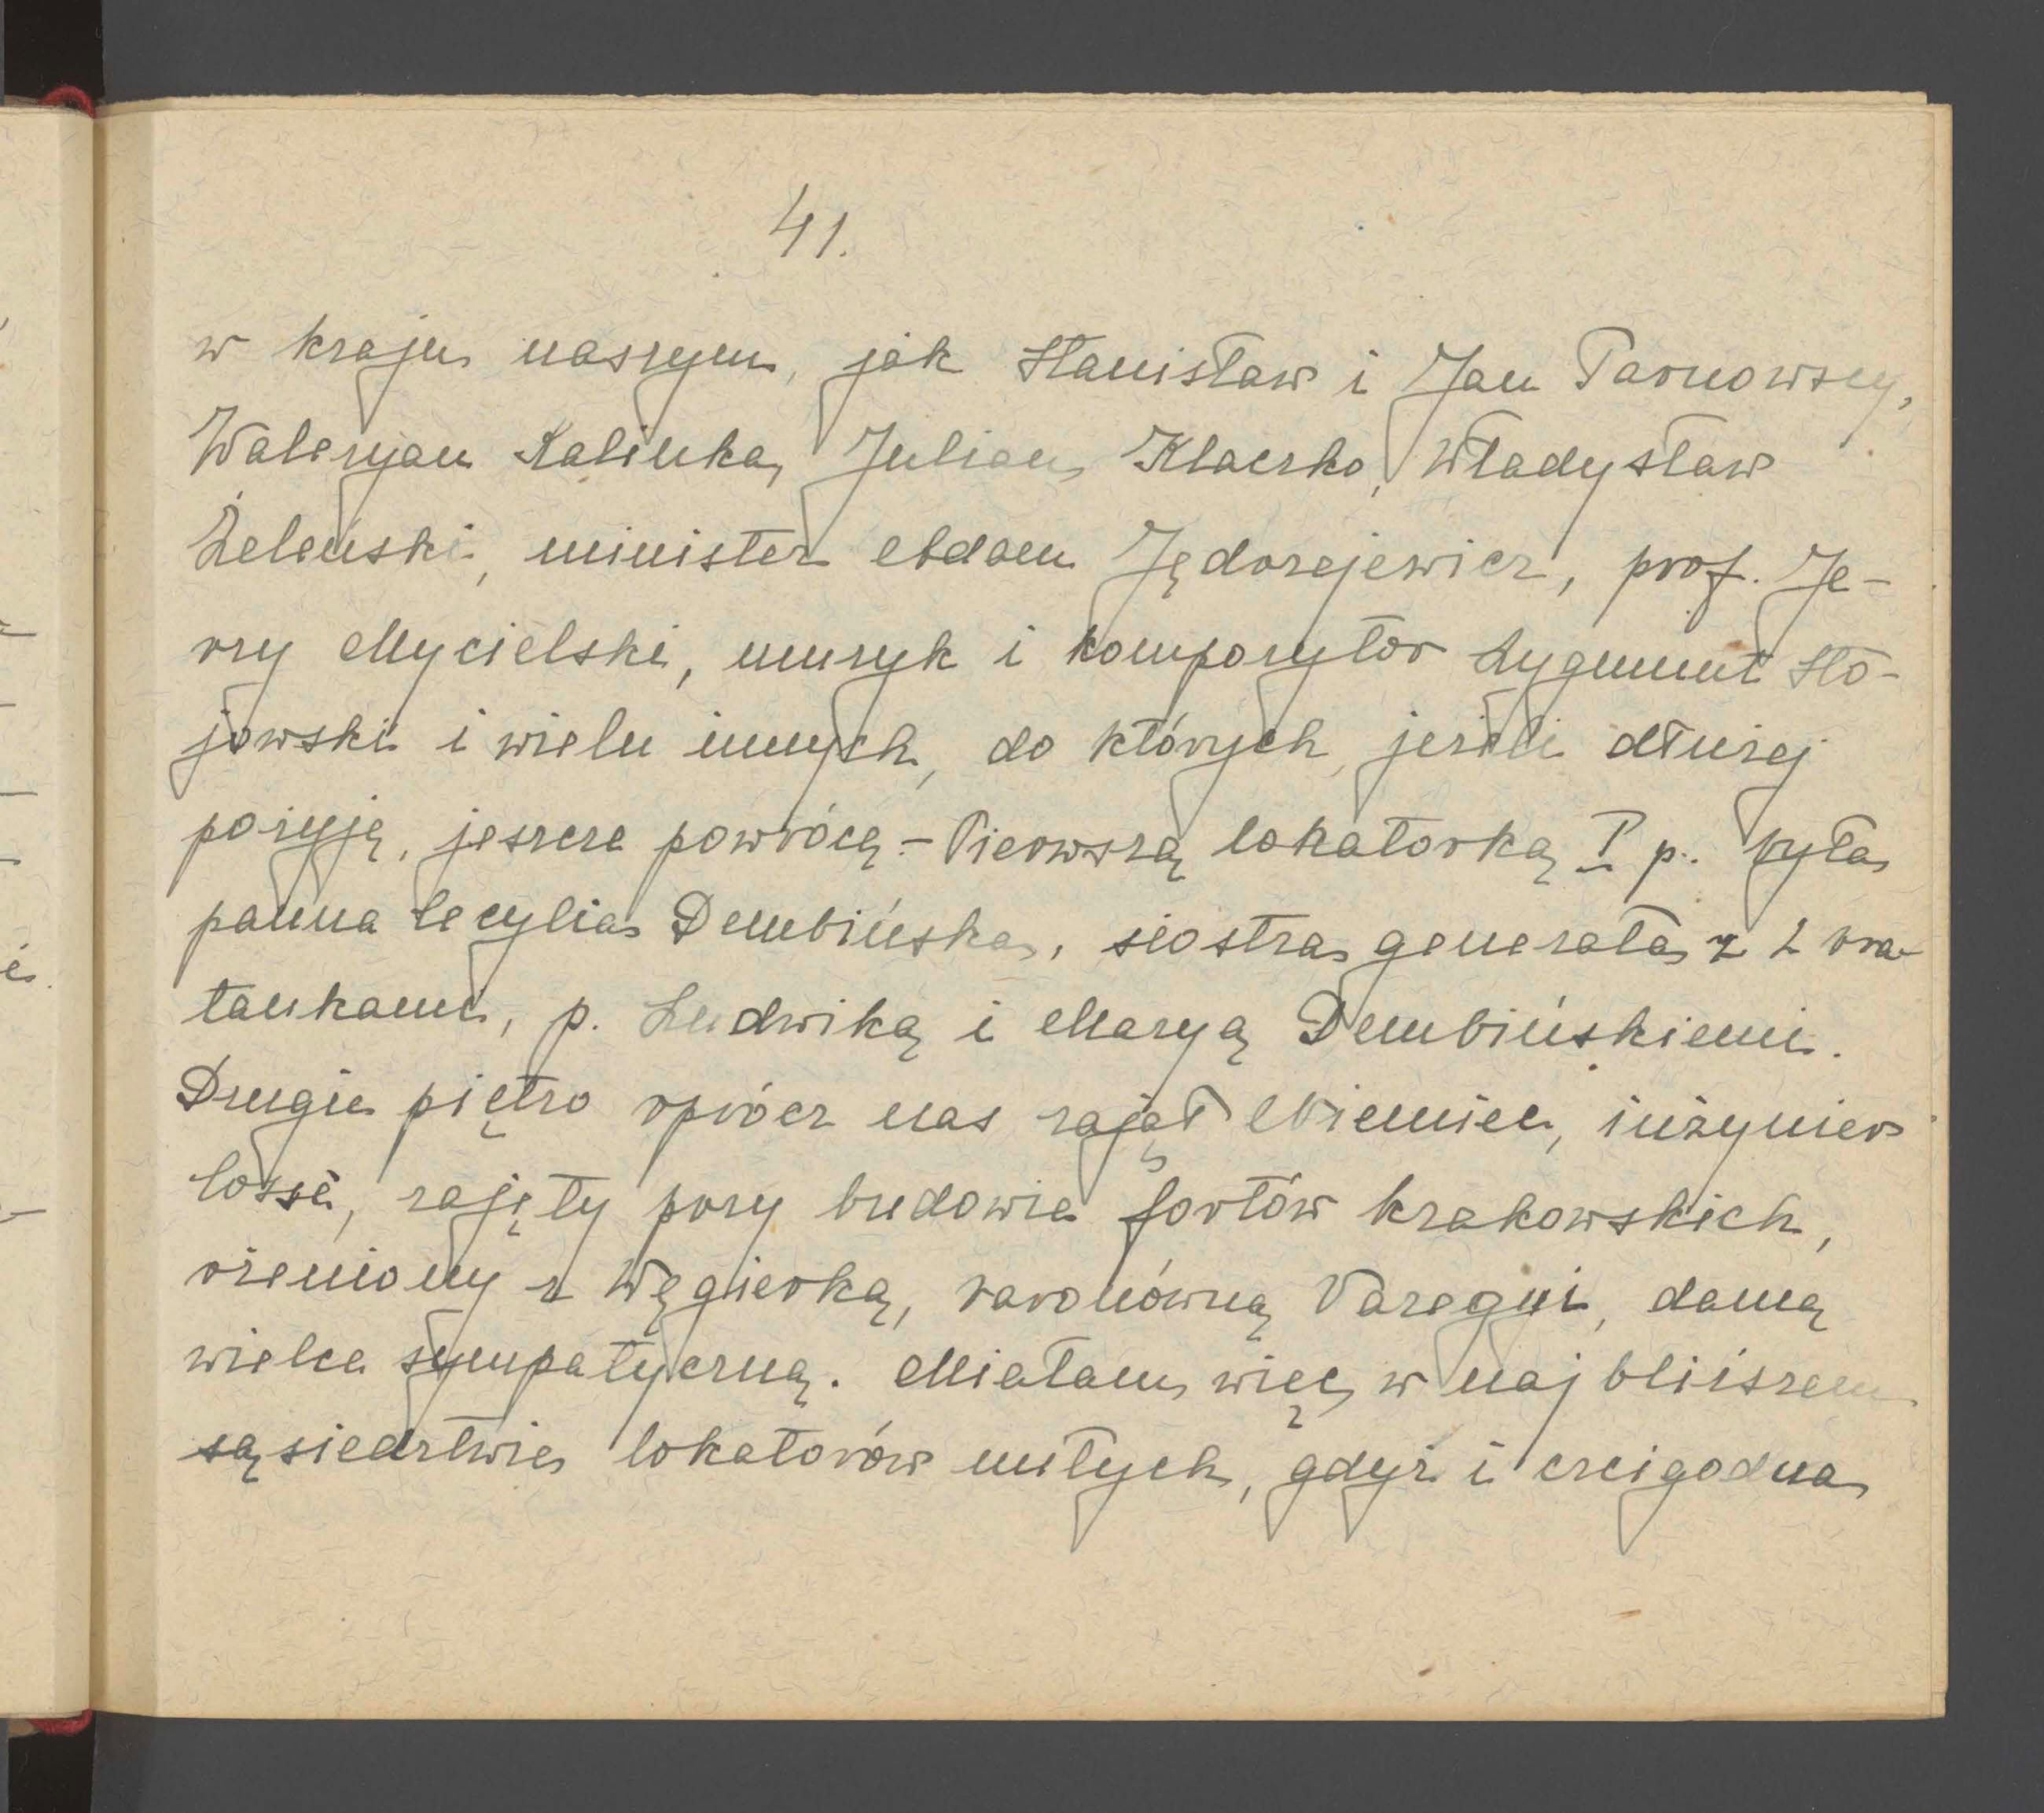 41.
w kraju naszym, jak Stanisław i Jan Tarnowscy,
Waleryan Kalinka, Julian Klaczko, Władysław
Żeleński, minister Adam Jędrzejewicz, prof. Je-
rzy Mycielski, muzyk i kompozytor Zygmunt Sto-
jowski i wielu innych, do których, jeżeli dłużej
pożyję, jeszcze powrócę. - Pierwszą lokatorką I p. była
panna Cecylia Dembińska, siostra generała z 2 bra-
tankami, p. Ludwiką i Maryą Dembińskiemi.
Drugie piętro oprócz nas zajął Niemiec, inżynier
Losse, zajęty przy budowie fortów krakowskich,
ożeniony z Węgierką, baronówną Varegyi, damą
wielce sympatyczną. Miałam więc w najbliższem
sąsiedztwie lokatorów miłych, gdyż i czcigodna